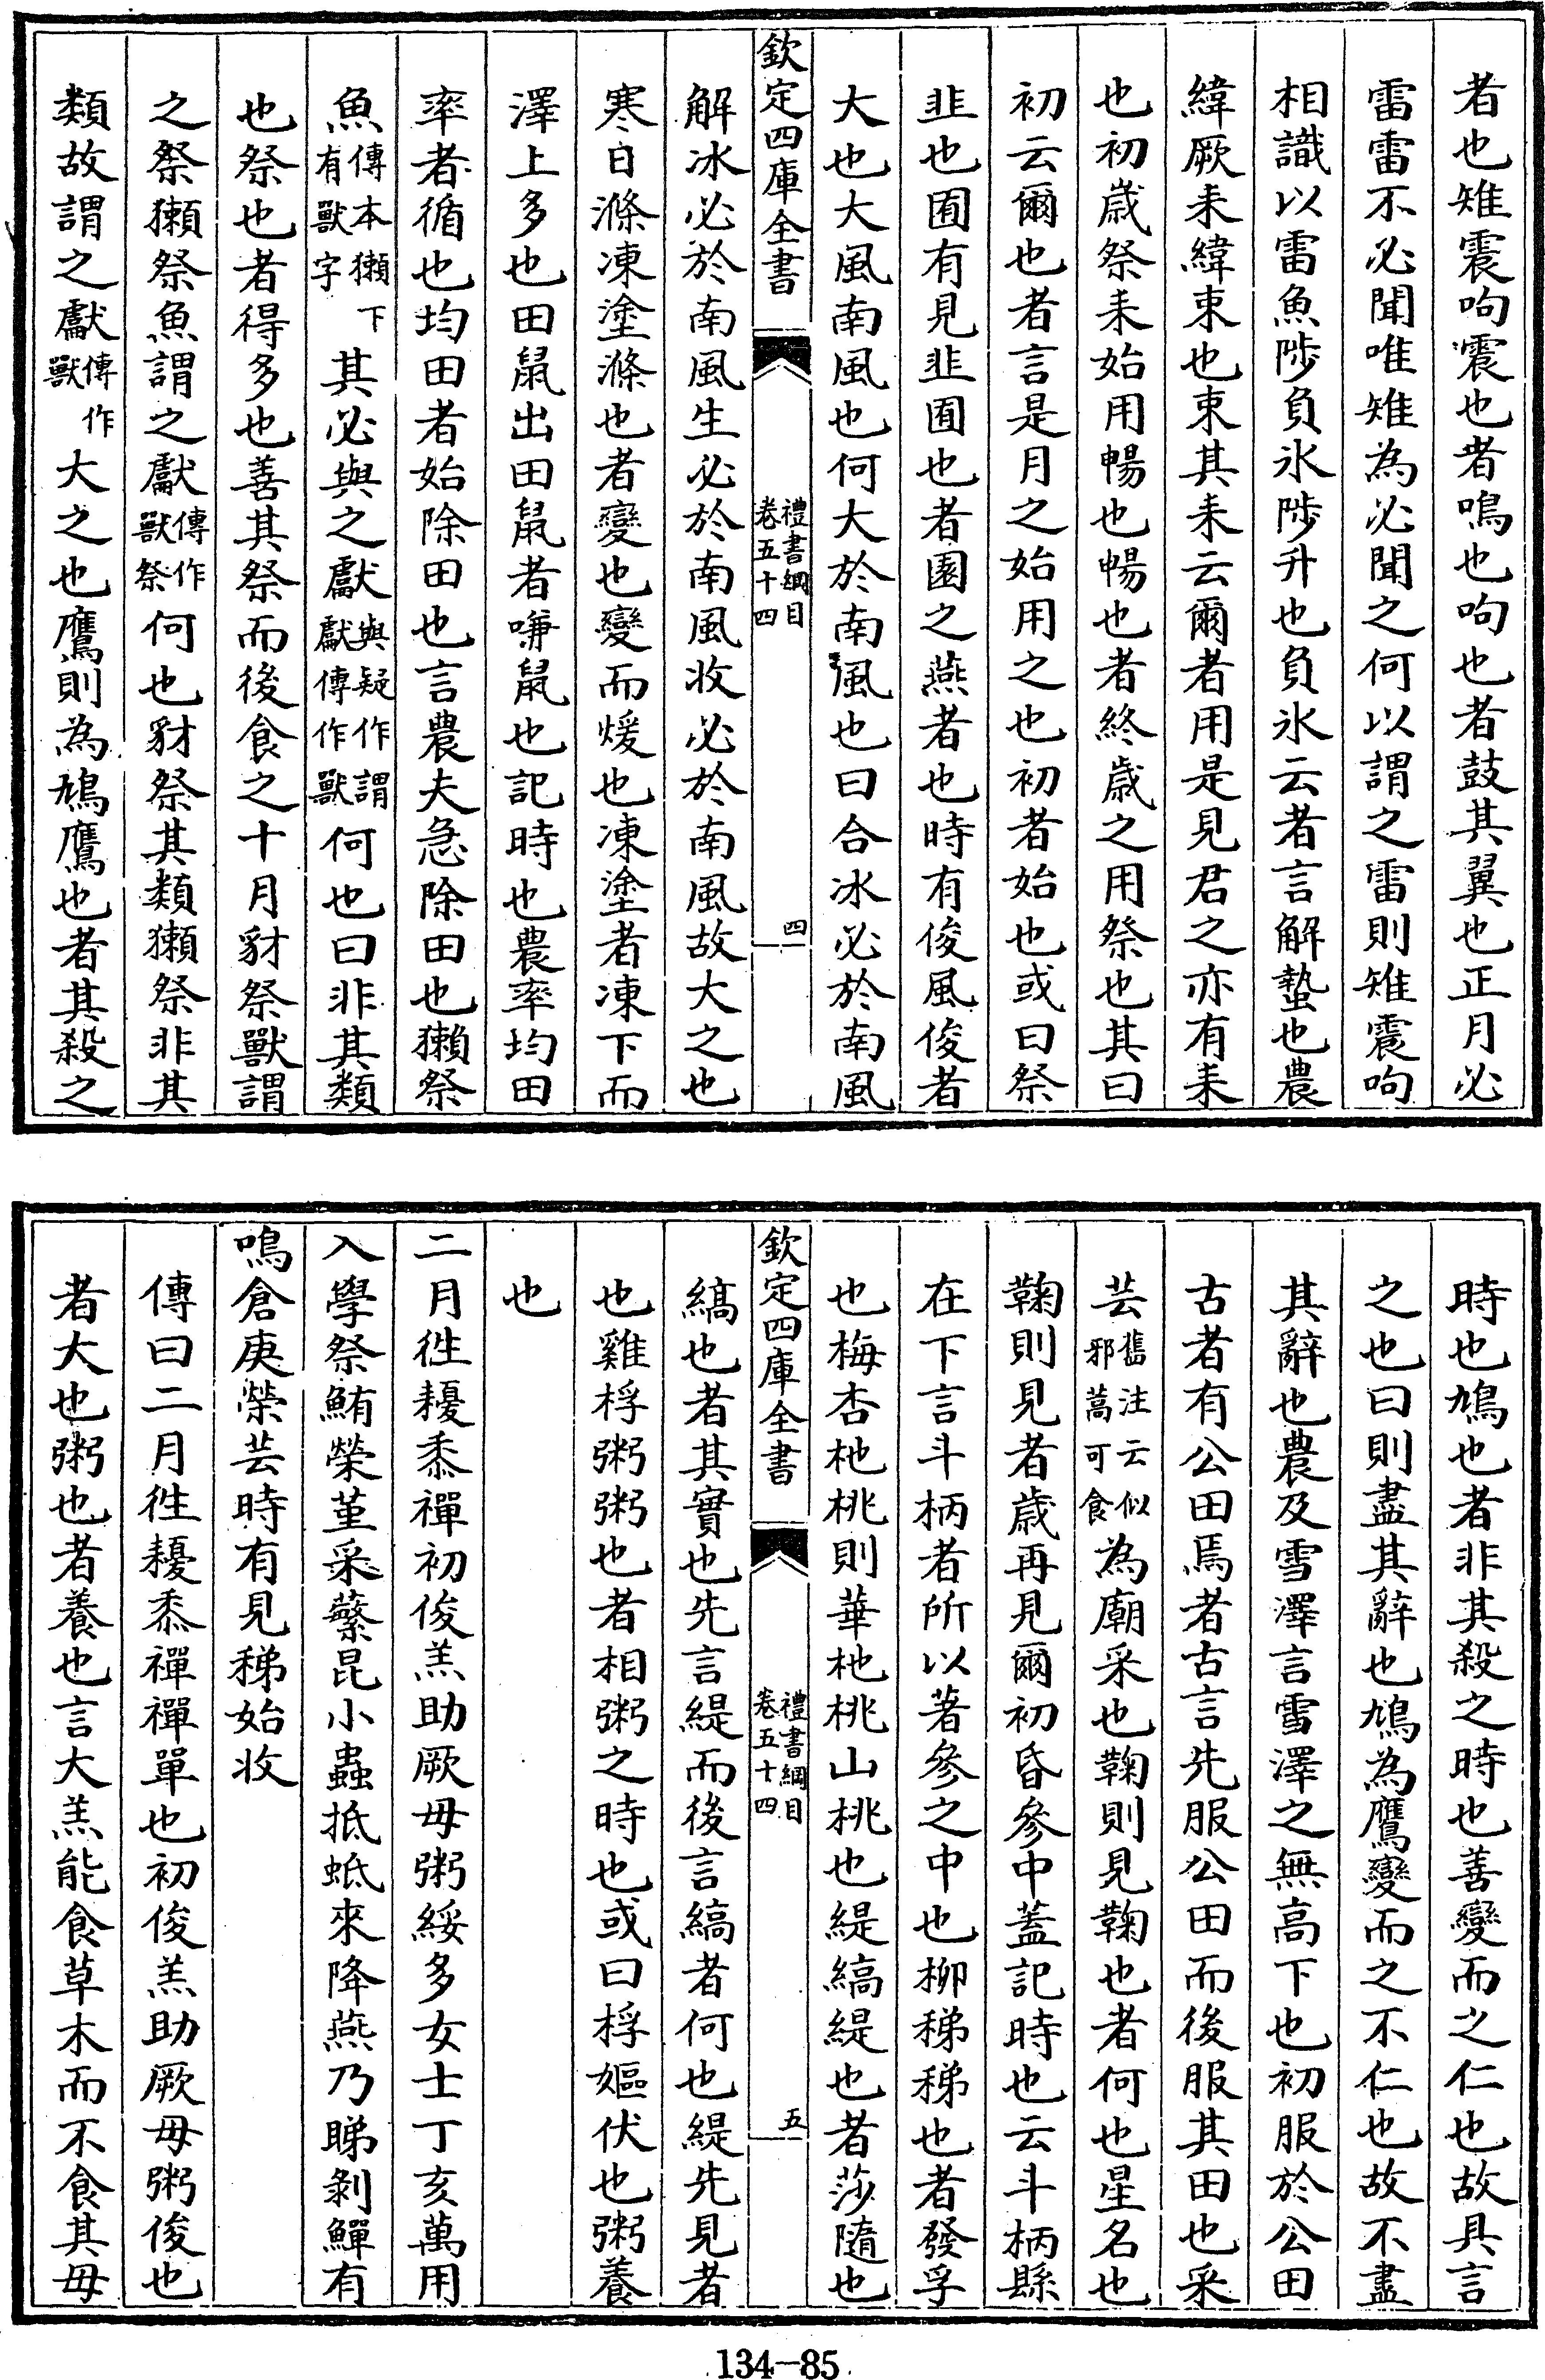 者也雉震呴震也者鳴也呴也者鼓其翼也正月必
雷雷不必聞唯雉為必聞之何以謂之雷則雉震呴
相識以雷魚陟負氷陟升也負氷云者言解蟄也農
緯厥耒緯束也束其耒云爾者用是見君之亦有耒
也初嵗祭耒始用暢也暢也者終歳之用祭也其曰
初云爾也者言是月之始用之也初者始也或曰祭
韭也囿有見韭囿也者園之燕者也時有俊風俊者
大也大風南風也何大於南風也曰合冰必於南風
欽定四庫全書
禮書綱目
卷五十四
四
解冰必於南風生必於南風收必於南風故大之也
寒日滌凍塗滌也者變也變而煖也凍塗者凍下而
澤上多也田鼠出田鼠者嗛鼠也記時也農率均田
率者循也均田者始除田也言農夫急除田也獺祭
魚傳本獺下有獸字其必與之獻與疑作謂獻傳作獸何也曰非其類
也祭也者得多也善其祭而後食之十月豺祭獸謂
之祭獺祭魚謂之獻傳作獸祭何也豺祭其類獺祭非其
類故謂之獻傳作獸大之也鷹則為鳩鷹也者其殺之
時也鳩也者非其殺之時也善變而之仁也故具言
之也曰則盡其辭也鳩為鷹變而之不仁也故不盡
其辭也農及雪澤言雪澤之無高下也初服於公田
古者有公田焉者古言先服公田而後服其田也采
芸舊注云似邪蒿可食為廟采也鞠則見鞠也者何也星名也
鞠則見者歳再見爾初昏參中蓋記時也云斗柄縣
在下言斗柄者所以著參之中也柳稊稊也者發孚
也梅杏杝桃則華杝桃山桃也緹縞緹也者莎隨也
欽定四庫全書
禮書綱目
卷五十四
五
縞也者其實也先言緹而後言縞者何也緹先見者
也雞桴粥粥也者相粥之時也或曰桴嫗伏也粥養
也
二月徃耰黍襌初俊羔助厥母粥綏多女士丁亥萬用
入學祭鮪榮堇采蘩昆小蟲抵蚳來降燕乃睇剝鱓有
鳴倉庚榮芸時有見稊始收
傳曰二月徃耰黍襌襌單也初俊羔助厥母粥俊也
者大也粥也者養也言大羔能食草木而不食其母
134-85